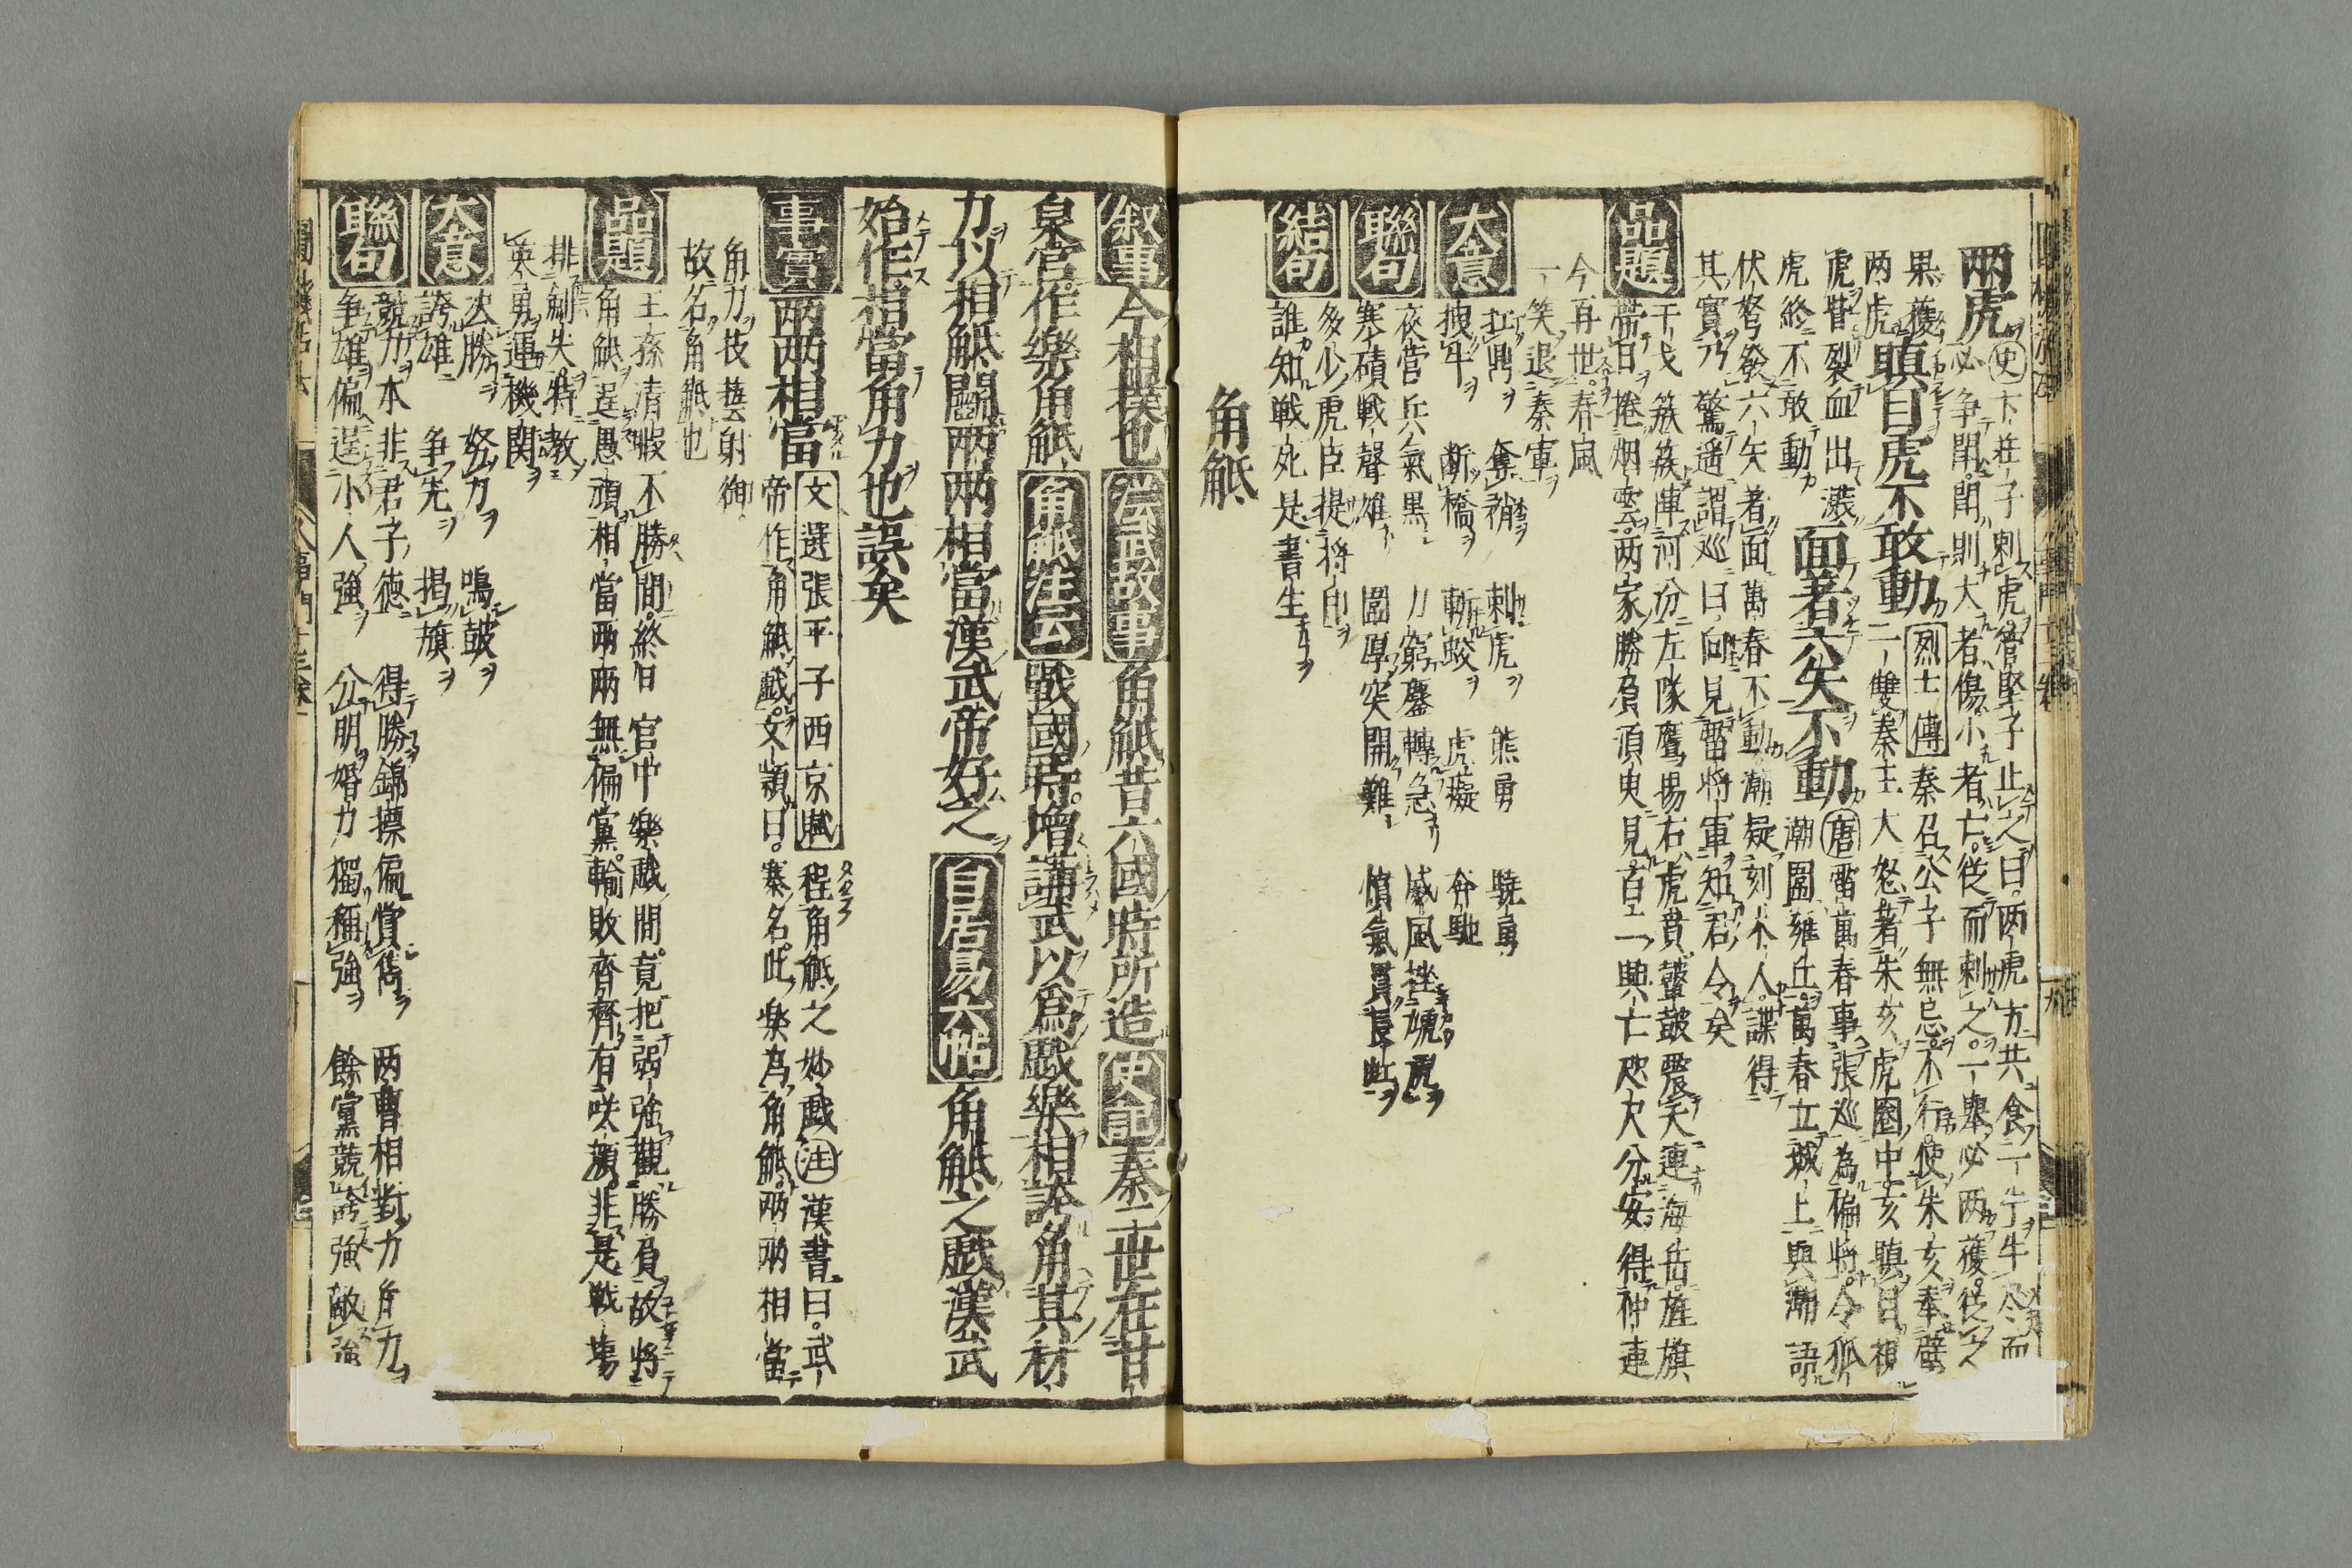 兩虎 史 卞荘子刺虎管竪子止之曰两虎方共食一牛牛尽而
必争闘闘則大者傷小者亡従而刺之一舉必两獲従之
果獲两虎 瞋目虎不敢動 烈士傳 秦召公子無忌不行使朱亥奉璧
一雙秦王大怒著朱亥虎圏中亥瞋目視
虎眥裂血出濺
虎終不敢動 面著六矢不動 唐 雷萬春事張巡為偏将令狐
潮圍雍丘萬春立城上與潮語
伏弩發六矢著面萬春不動潮疑刻木人諜得
其實乃驚遥謂巡曰向見雷将軍知君令矣
品題 干戈簇簇陣河分左隊鷹揚右虎賁鼙鼓震天連海岳旌旗
帯日捲烟雲两家勝負須臾見百二興亡咫尺分安得仲連
今再世春風
一笑退秦軍
大意 扛鼎 奪矟 刺虎 熊勇 驍勇
拽牛 断橋 斬蛟 虎癡 奔馳
聯句 夜營兵氣黒 力窮鏖轉急 威風挫虓虎
寒磧戦聲雄 圍厚突開難 憤氣貫長虹
結句 多少虎臣提将印
誰知戦死是書生
角觝
叙事 今相撲也 漢武故事 角觝昔六國時所造 史記 秦二世在甘
泉宮作樂角觝 角觝注云 戰國時增講武以爲戯樂相誇角其材
力以相觝鬪两两相當漢武帝好之 白居易六帖 角觝之戯漢武
始作相當角力也誤矣
事實 兩两相當 文選張平子西京賦 程角觝之妙戯 注 漢書曰武
帝作角觝戯文頴曰秦名此樂為角觝两两相當
角力技藝射御
故名角觝也
品題 王孫清暇不勝間終日官中樂戯間竟把弱強觀勝負故将
角觝逞愚頑相當两两無偏黨輸敗齊齊有咲顔非是戦場
排劒失特教
英勇運機関
大意 决勝 努力 鳴鼓
誇雄 争先 掲旗
聯句 競力本非君子徳 得勝錦標偏賞雋 两曹相對力角力
争雄偏逞小人強 分明婚力獨稱強 餘黨競誇強敵強